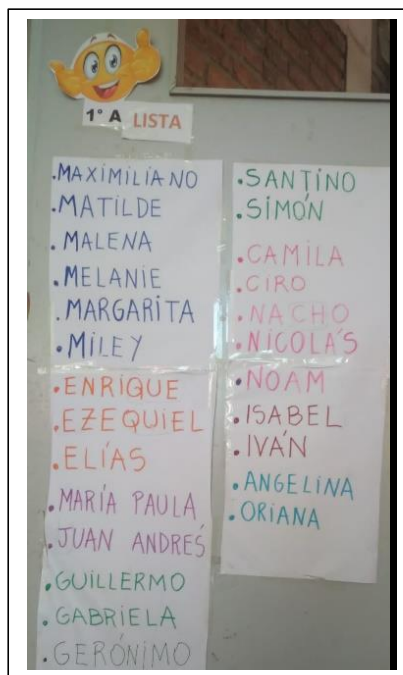 1° A LISTA
.MAXIMILIANO
.MATILDE
.MALENA
.MELANIE
.MARGARITA
.MILEY
.ENRIQUE
.EZEQUIEL
.ELÍAS
.MARÍA PAULA
.JUAN ANDRÉS
.GUILLERMO
.GABRIELA
.GERÓNIMO
.SANTINO
.SIMÓN
.CAMILA
.CIRO
.NACHO
.NICOLÁS
.NOAM
.ISABEL
.IVÁN
.ANGELINA
.ORIANA